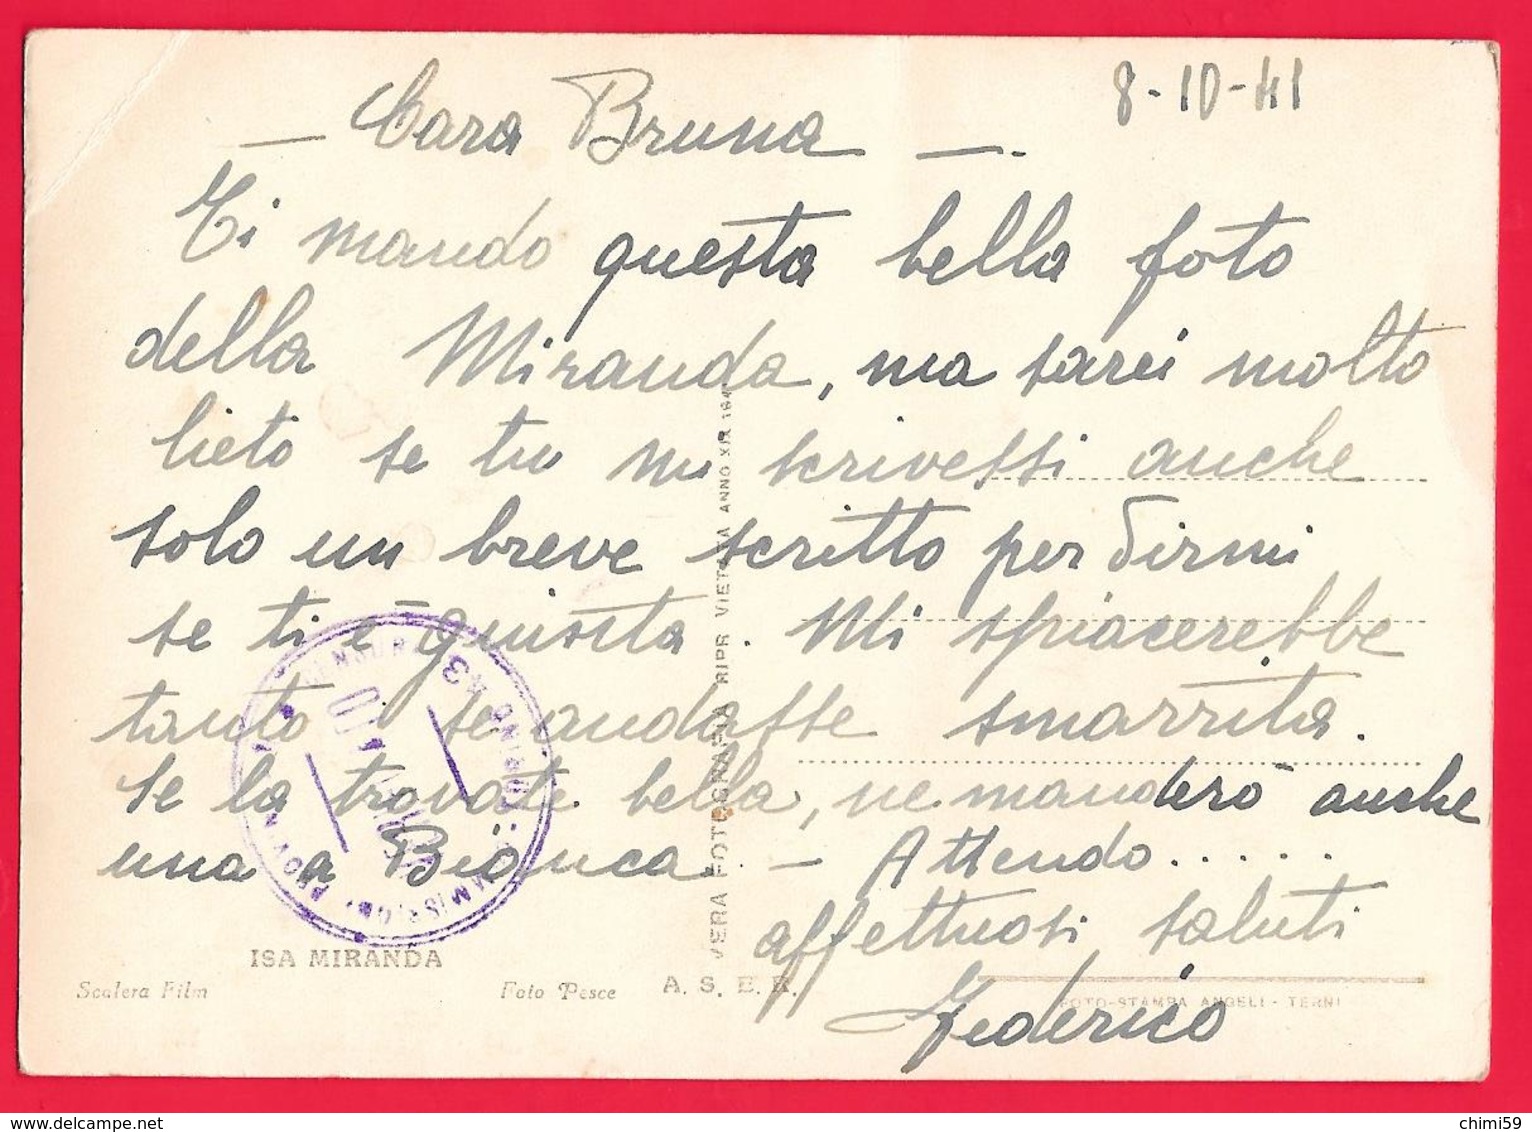 8-10-41
— Cara Bruna —.
Ti mando questa bella foto
della Miranda, ma sarei molto
lieto se tu mi scrivessi anche
solo un breve scritto per dirmi
se ti è giunta. Mi spiacerebbe
tanto se andasse smarrita.
Se la trovate bella, ne manderò anche
una a Bianca. — Attendo......
affettuosi saluti
Federico
ISA MIRANDA
Scalera Film
Foto Pesce
A. S. E. R.
FOTO-STAMPA ANGELI - TERNI
VERA FOTOGRAFIA RIPR VIETATA ANNO XIX 194
CENSURA
TORINO
COMMISSIONE PROVIN
chimi59